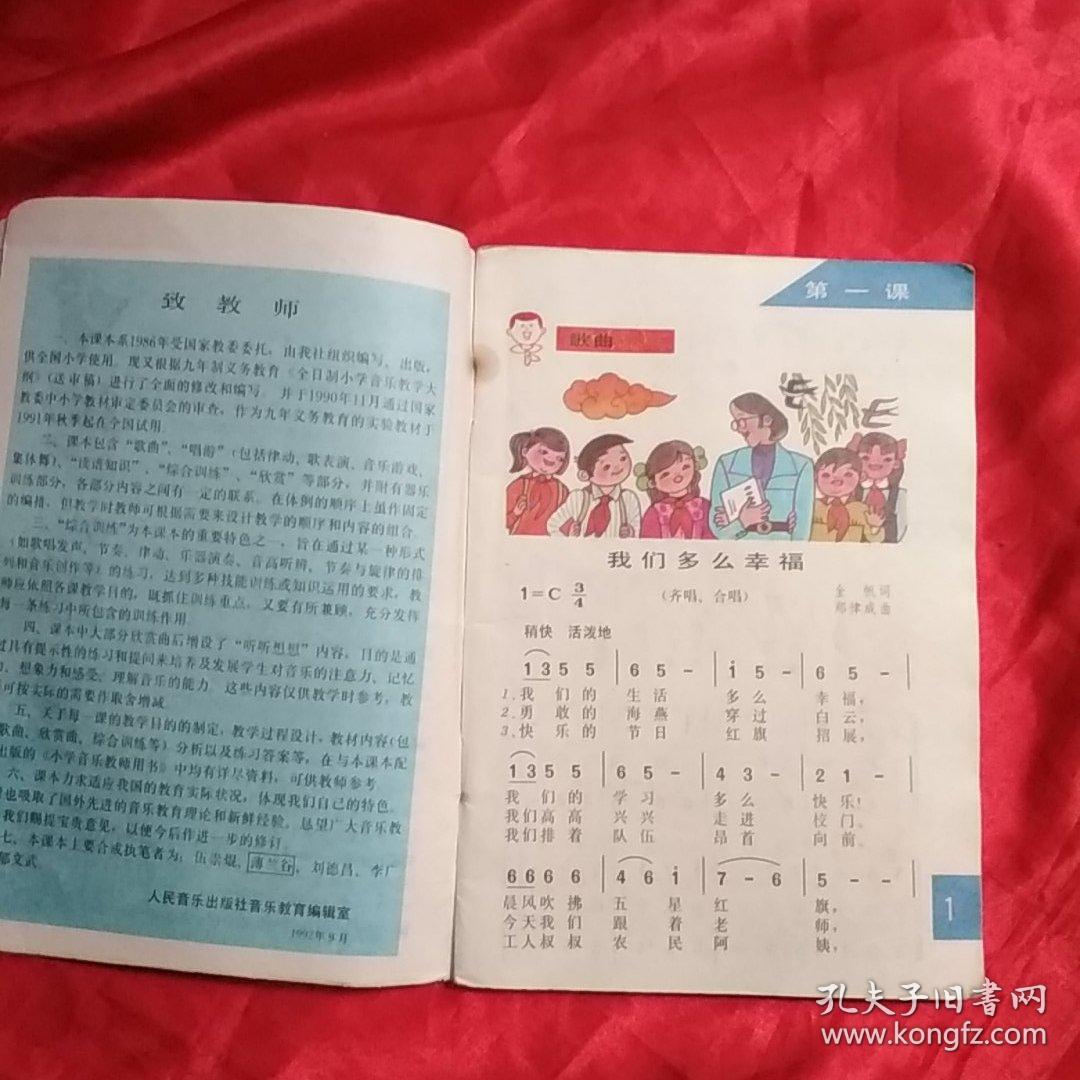 致教师
一、本课本系1986年受国家教委委托,由我社组织编写、出版,
供全国小学使用。现又根据九年制义务教育《全日制小学音乐教学大
纲》(送审稿)进行了全面的修改和编写。并于1990年11月通过国家
教委中小学教材审定委员会的审查,作为九年义务教育的实验教材于
1991年秋季起在全国试用。
二、课本包含“歌曲”、“唱游”(包括律动、歌表演、音乐游戏、
集体舞)、“读谱知识”、“综合训练”、“欣赏”等部分,并附有器乐
训练部分,各部分内容之间有一定的联系。在体例的顺序上虽作固定
的编排,但教学时教师可根据需要来设计教学的顺序和内容的组合。
三、“综合训练”为本课本的重要特色之一,旨在通过某一种形式
(如歌唱发声、节奏、律动、乐器演奏、音高听辨、节奏与旋律的排
列和音乐创作等)的练习,达到多种技能训练或知识运用的要求,教
师应依照各课教学目的,既抓住训练重点,又要有所兼顾,充分发挥
每一条练习中所包含的训练作用。
四、课本中大部分欣赏曲后增设了“听听想想”内容,目的是通
过具有提示性的练习和提问来培养及发展学生对音乐的注意力、记忆
力、想象力和感受、理解音乐的能力。这些内容仅供教学时参考,教
可按实际的需要作取舍增减。
五、关于每一课的教学目的的制定,教学过程设计,教材内容(包
歌曲、欣赏曲、综合训练等)分析以及练习答案等,在与本课本配
出版的《小学音乐教师用书》中均有详尽资料,可供教师参考。
六、课本力求适应我国的教育实际状况,体现我们自己的特色。
也吸取了国外先进的音乐教育理论和新鲜经验。恳望广大音乐教
我们赐提宝贵意见,以便今后作进一步的修订。
七、本课本主要合成执笔者为:伍崇焜、薄兰谷、刘德昌、李广
郁文武。
人民音乐出版社音乐教育编辑室
1992年9月
第一课
歌曲
我们多么幸福
1=C 3/4 (齐唱、合唱) 金帆词
郑律成曲
稍快 活泼地
1 3 5 5 | 6 5 - | i 5 - | 6 5 - |
1.我们的生活多么幸福,
2.勇敢的海燕穿过白云,
3.快乐的节日红旗招展,
1 3 5 5 | 6 5 - | 4 3 - | 2 1 - |
我们的学习多么快乐!
我们高高兴兴走进校门。
我们排着队伍昂首向前。
6 6 6 6 | 4 6 i | 7 - 6 | 5 - - |
晨风吹拂五星红旗,
今天我们跟着老师,
工人叔叔农民阿姨,
1
孔夫子旧書网
www.kongfz.com